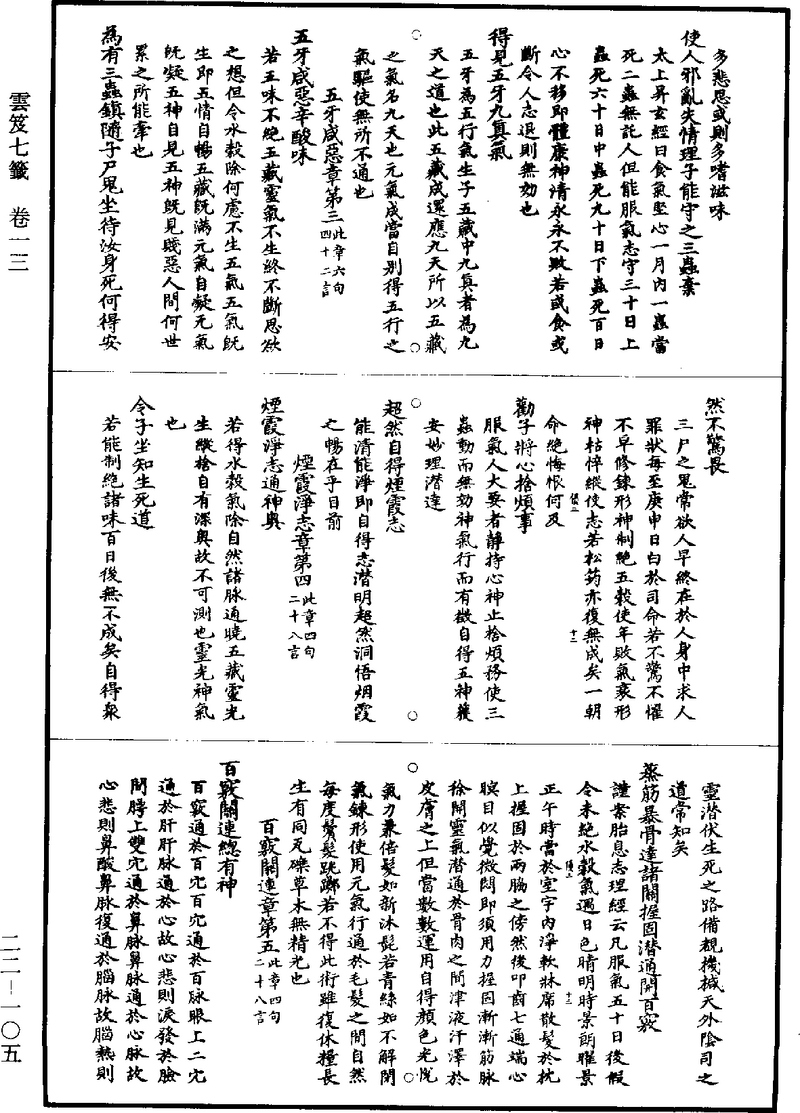 多悲思或則多嗜滋味
使人邪亂失情理子能守之三蟲棄
太上昇玄經曰食氣堅心一月內一蟲當
死二蟲無託人但能服氣志守三十日上
蟲死六十日中蟲死九十日下蟲死百日
心不移即體康神清永永不敗若或食或
斷令人志退則無効也
得見五牙九真氣
五牙為五行氣生子五藏中九真者為九
天之道也此五藏成還應九天所以五藏
之氣名九天也元氣成當自別得五行之
氣驅使無所不通也
五牙咸惡章第三此章六句四十二言
五牙咸惡辛酸味
若五味不絕五藏靈氣不生終不斷思欲
之想但令水穀除何慮不生五氣五氣既
生即五情自暢五藏既滿元氣自凝元氣
既凝五神自見五神既見賤惡人間何世
累之所能牽也
為有三蟲鎮隨子尸鬼坐待汝身死何得安
然不驚畏
三尸之鬼常欲人早終在於人身中求人
罪狀每至庚申日白於司命若不驚不懼
不早修鍊形神制絕五穀使年敗氣衰形
神枯悴縱使志若松筠亦復無成矣一朝
命絕悔恨何及
勸子將心捨煩事
服氣人大要者靜持心神止捨煩務使三
蟲動而無効神氣行而有徵自得五神獲
安妙理潛達
超然自得煙霞志
能清能淨即自得志潛明超然洞悟烟霞
之暢在乎目前
煙霞淨志章第四此章四句二十八言
煙霞淨志通神輿
若得水穀氣除自然諸脉通曉五藏靈光
生縱捨自有深奥故不可測也靈光神氣
也
令子坐知生死道
若能制絕諸味百日後無不成矣自得衆
靈潛伏生死之路備覩機械天外陰司之
道常知矣
蒸筋暴骨達諸關握固潛通開百竅
謹案胎息志理經云凡服氣五十日後假
令未絕水穀氣過日色晴明時景朗曜景
正午時當於室宇內淨軟牀席散髮於枕
上握固於兩脇之傍然後叩齒七通端心
瞑目似覺微悶即須用力握固漸漸筋脉
徐開靈氣潛通於骨肉之間津液汗澤於
皮膚之上但當數數運用自得顏色光悅
氣力兼倍髮如新沐髭若青絲如不解閉
氣鍊形使用元氣行通於毛髮之間自然
每度鬢髮跳躑若不得此術雖復休糧長
生有同瓦礫草木無精光也
百竅關連章第五此章四句二十八言
百竅關連總有神
百竅通於百穴百穴通於百脉眼上二穴
通於肝肝脉通於心故心悲則淚發於臉
間脖上雙穴通於鼻脉鼻脉通於心脉故
心悲則鼻酸鼻脉復通於腦脉故腦熱則
雲笈七籤 卷一三
二二-一〇五